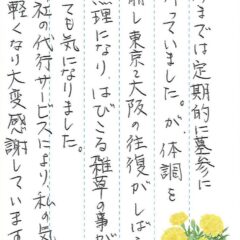 までは定期的に墓参に
行っていました。が、体調を
崩し東京と大阪の往復がしば
無理になり、はびこる雑草の事が
ても気になりました。
社の代行サービスにより、私の気
軽くなり大変感謝しています